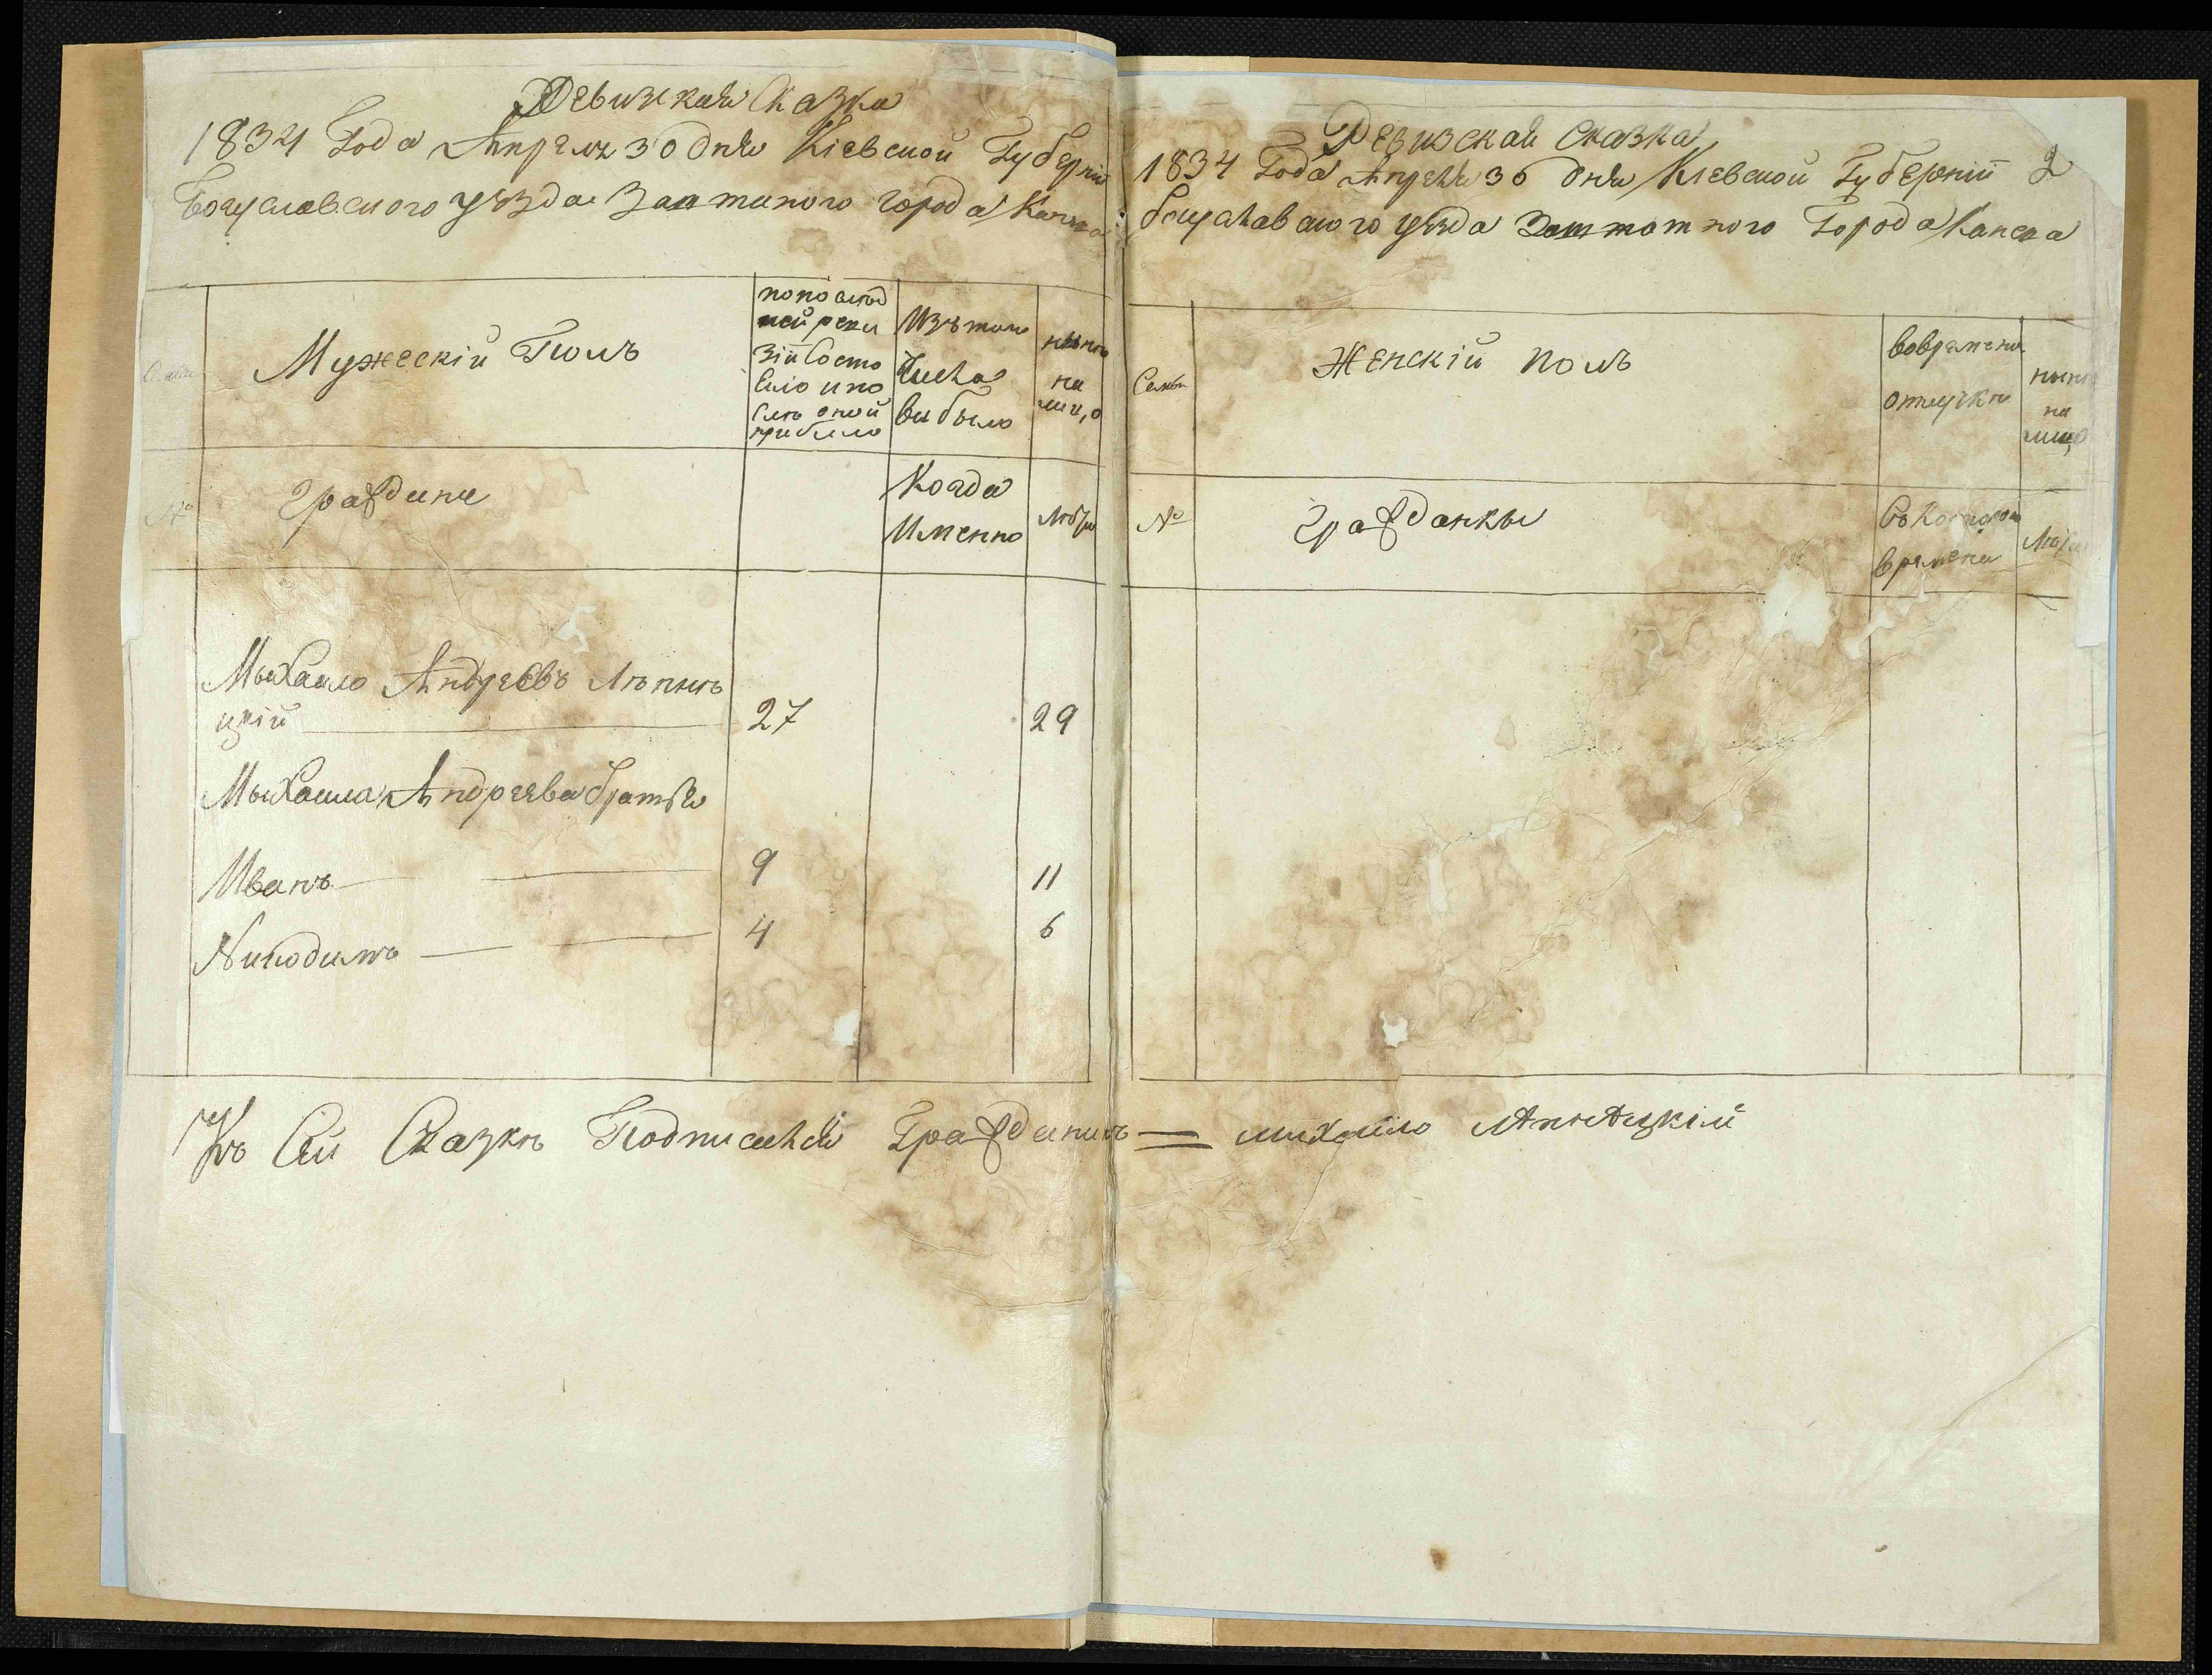 Ревизская Сказка
1834 Года Апреля 30 дня Кіевской Губерніи
Богуславского уѣзда Заштатного города Канева
Семьи
Мужескій Полъ
попослѣд
ней реви
зій Состо
яло и по
слѣ оной
прибыло
Изъ того
Числа
выбыло
нынѣ
на
лицо
№
Граждане
Когда
Именно
Лѣта
Мыхайло Андреевъ Лѣпнѣ
цкій 27 29
Мыхайла Андреева братья
Иванъ 9 11
Никодимъ 4 6
Къ Сей Сказкѣ Подписался Гражданинъ
Ревизская Сказка
2
1834 Года Апреля 30 дня Кіевской Губерніи
богуславского уѣзда Заштатного Города Канева
Семьи
Женскій полъ
вовремени
отлучкѣ
нынѣ
на
лицо
№
Гражданкы
Съ Которого
времени
Лѣта
михайло